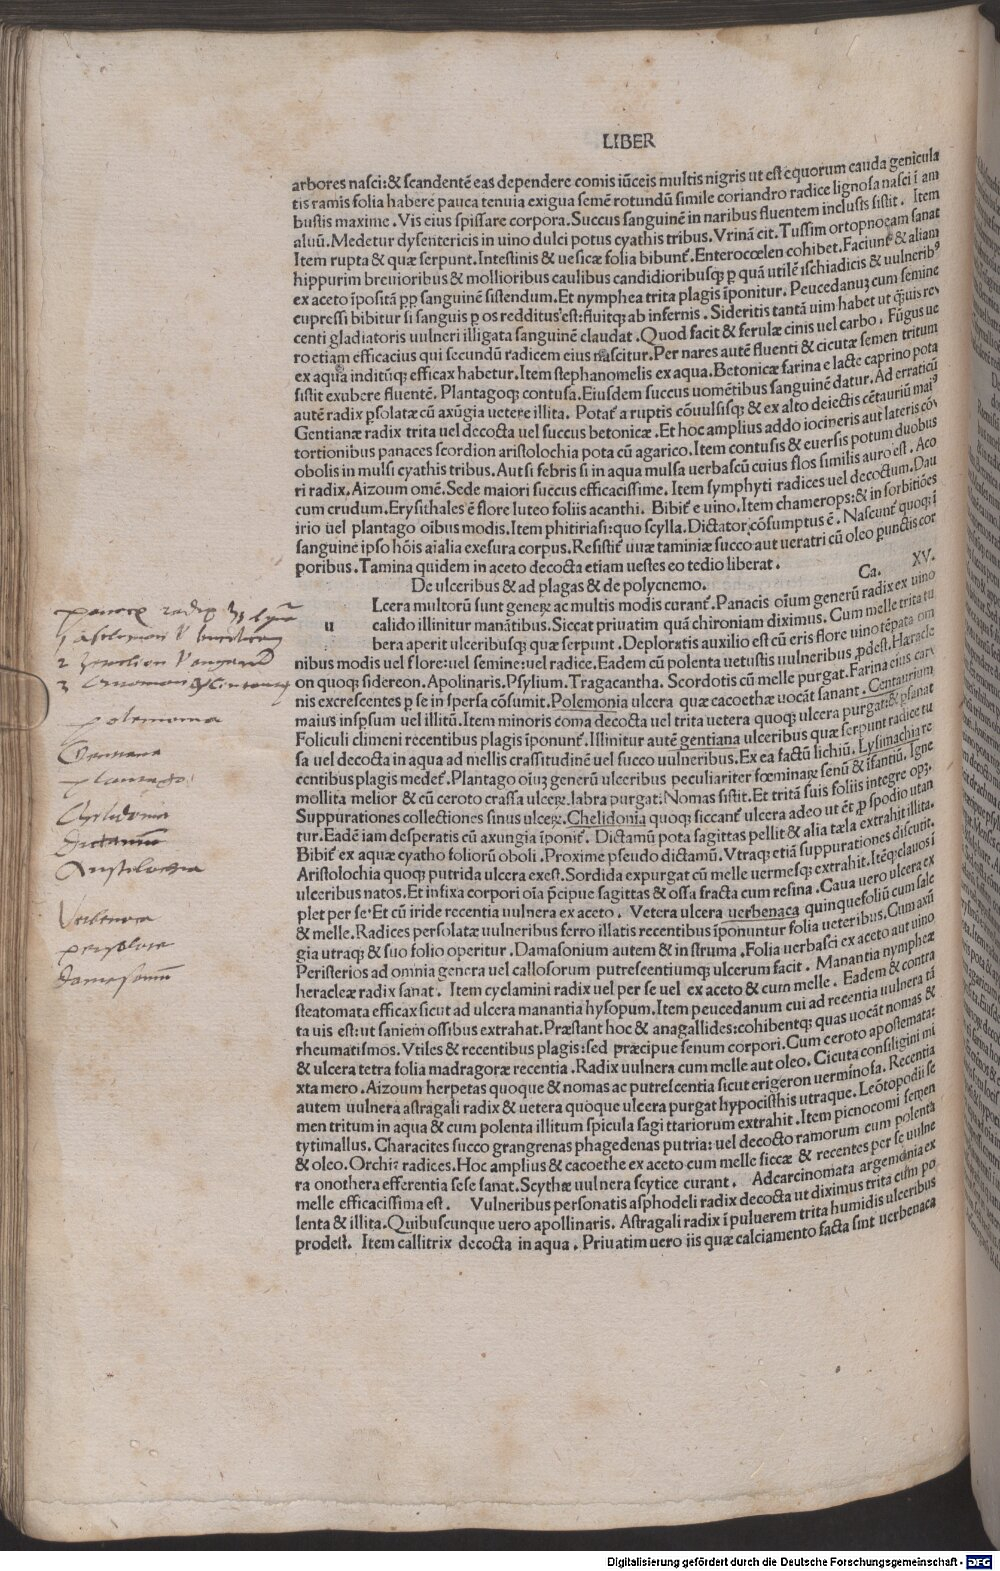 LIBER
arbores nasci:& scandentē eas dependere comis iūceis multis nigris ut est equorum cauda genicula
tis ramis folia habere pauca tenuia exigua semē rotundū simile coriandro radice lignosa nasci ī am
bustis maxime. Vis eius spissare corpora. Succus sanguinē in naribus fluentem inclusis sistit. Item
aluū. Medetur dysentericis in uino dulci potus cyathis tribus. Vrinā cit. Tussim ortopnoeam sanat
Item rupta & quæ serpunt. Intestinis & uesicæ folia bibunt. Enterocœlen cohibet. Faciunt & aliam
hippurim breuioribus & mollioribus caulibus candidioribusq; ꝑ quā utilē ischiadicis & uulneribꝰ
ex aceto īpositā ꝓꝑ sanguinē sistendum. Et nymphea trita plagis īponitur. Peucedanuȝ cum semine
cupressi bibitur si sanguis ꝑ os redditus est: fluitq; ab infernis. Sideritis tantā uim habet ut q̄uis re
centi gladiatoris uulneri illigata sanguinē claudat. Quod facit & ferulæ cinis uel carbo. Fūgus ue
ro etiam efficacius qui secundū radicem eius nascitur. Per nares autē fluenti & cicutæ semen tritum
ex aqua inditūq; efficax habetur. Item stephanomelis ex aqua. Betonicæ farina e lacte caprino pota
sistit exubere fluentē. Plantagoq; contusa. Eiusdem succus uomētibus sanguinē datur. Ad erraticū
autē radix ꝑsolatæ cū axūgia uetere illita. Potat̄ a ruptis cōuulsisq; & ex alto deiectis cētauriū maiꝰ
Gentianæ radix trita uel decocta uel succus betonicæ. Et hoc amplius addo iocineris aut lateris cō
tortionibus panaces scordion aristolochia pota cū agarico. Item contusis & euersis potum duobus
obolis in mulsi cyathis tribus. Aut si febris si in aqua mulsa uerbascū cuius flos similis auro est. Aco
ri radix. Aizoum omē. Sede maiori succus efficacissime. Item symphyti radices uel decoctum. Dau
cum crudum. Erysithales ē flore luteo foliis acanthi. Bibit̄ e uino. Item chamerops: & in sorbitiōes
irio uel plantago oībus modis. Item phitiriasi: quo scylla. Dictator cōsumptus ē. Nascunt̄ quoq; ī
sanguine ipso hōis aīalia exesura corpus. Resistit̄ uuæ taminiæ succo aut ueratri cū oleo punctis cor
poribus. Tamina quidem in aceto decocta etiam uestes eo tedio liberat.
De ulceribus & ad plagas & de polycnemo. Ca. XV.
Lcera multorū sunt generȩ ac multis modis curant̄. Panacis oīum generū radix ex uino
u calido illinitur manātibus. Siccat priuatim quā chironiam diximus. Cum melle trita tu
bera aperit ulceribusq; quæ serpunt. Deploratis auxilio est cū eris flore uino tēpata om
nibus modis uel flore: uel semine: uel radice. Eadem cū polenta uetustis uulneribus ꝓdest. Haracle
on quoq; sidereon. Apolinaris. Psylium. Tragacantha. Scordotis cū melle purgat. Farina eius car
nis excrescentes ꝑ se in spersa cōsumit. Polemonia ulcera quæ cacoethæ uocāt sanant. Centaurium
maius inspsum uel illitū. Item minoris coma decocta uel trita uetera quoq; ulcera purgat: & ꝑsanat
Foliculi climeni recentibus plagis īponunt̄. Illinitur autē gentiana ulceribus quæ serpunt radice tu
sa uel decocta in aqua ad mellis crassitudinē uel succo uulneribus. Ex ea factū lichiū. Lysimachia re
centibus plagis medet̄. Plantago oīuȝ generū ulceribus peculiariter fœminarȩ senū & īfantiū. Igne
mollita melior & cū ceroto crassa ulcerȩ labra purgat: Nomas sistit. Et tritā suis foliis integre opȝ.
Suppurationes collectiones sinus ulcerȩ. Chelidonia quoq; siccant̄ ulcera adeo ut ēt ꝑ spodio utan
tur. Eadē iam desperatis cū axungia īponit̄. Dictamū pota sagittas pellit & alia tæla extrahit illita.
Bibit̄ ex aquæ cyatho foliorū oboli. Proxime pseudo dictamū. Vtraq; etiā suppurationes discutit.
Aristolochia quoq; putrida ulcera exest. Sordida expurgat cū melle uermesq; extrahit. Itēq; clauos ī
ulceribus natos. Et infixa corpori oīa p̄cipue sagittas & ossa fracta cum resina. Caua uero ulcera ex
plet per se. Et cū iride recentia uulnera ex aceto. Vetera ulcera uerbenaca quinquefoliū cum sale
& melle. Radices persolatæ uulneribus ferro illatis recentibus īponuntur folia ueteribus. Cum axū
gia utraq; & suo folio operitur. Damasonium autem & in struma. Folia uerbasci ex aceto aut uino
Peristerios ad omnia genera uel callosorum putrescentiumq; ulcerum facit. Manantia nympheæ
heracleæ radix sanat. Item cyclamini radix uel per se uel ex aceto & cum melle. Eadem & contra
steatomata efficax sicut ad ulcera manantia hysopum. Item peucedanum cui ad recentia uulnera tā
ta uis est: ut saniem ossibus extrahat. Præstant hoc & anagallides: cohibentq; quas uocāt nomas &
rheumatismos. Vtiles & recentibus plagis: sed præcipue senum corpori. Cum ceroto apostematæ
& ulcera tetra folia madragoræ recentia. Radix uulnera cum melle aut oleo. Cicuta consiligini mi
xta mero. Aizoum herpetas quoque & nomas ac putrescentia sicut erigeron uerminosa. Recentia
autem uulnera astragali radix & uetera quoque ulcera purgat hypocisthis utraque. Leōtopodii se
men tritum in aqua & cum polenta illitum spicula sagittariorum extrahit. Item picnocomi semen
tytimallus. Characites succo grangrenas phagedenas putria: uel decocto ramorum cum polenta
& oleo. Orchiȝ radices. Hoc amplius & cacoethe ex aceto cum melle siccæ & recentes per se uulne
ra onothera efferentia sese sanat. Scythæ uulnera scytice curant. Adcarcinomata argemonia ex
melle efficacissima est. Vulneribus personatis asphodeli radix decocta ut diximus trita cum po
lenta & illita. Quibuscunque uero apollinaris. Astragali radix ī puluerem trita humidis ulceribus
prodest. Item callitrix decocta in aqua. Priuatim uero iis quæ calciamento facta sint uerbenaca
polemonia
Gentiana
plantago
Chelidonia
Dictamum
Aristolochia
Verbenaca
persolatæ
damasonium
Digitalisierung gefördert durch die Deutsche Forschungsgemeinschaft - DFG